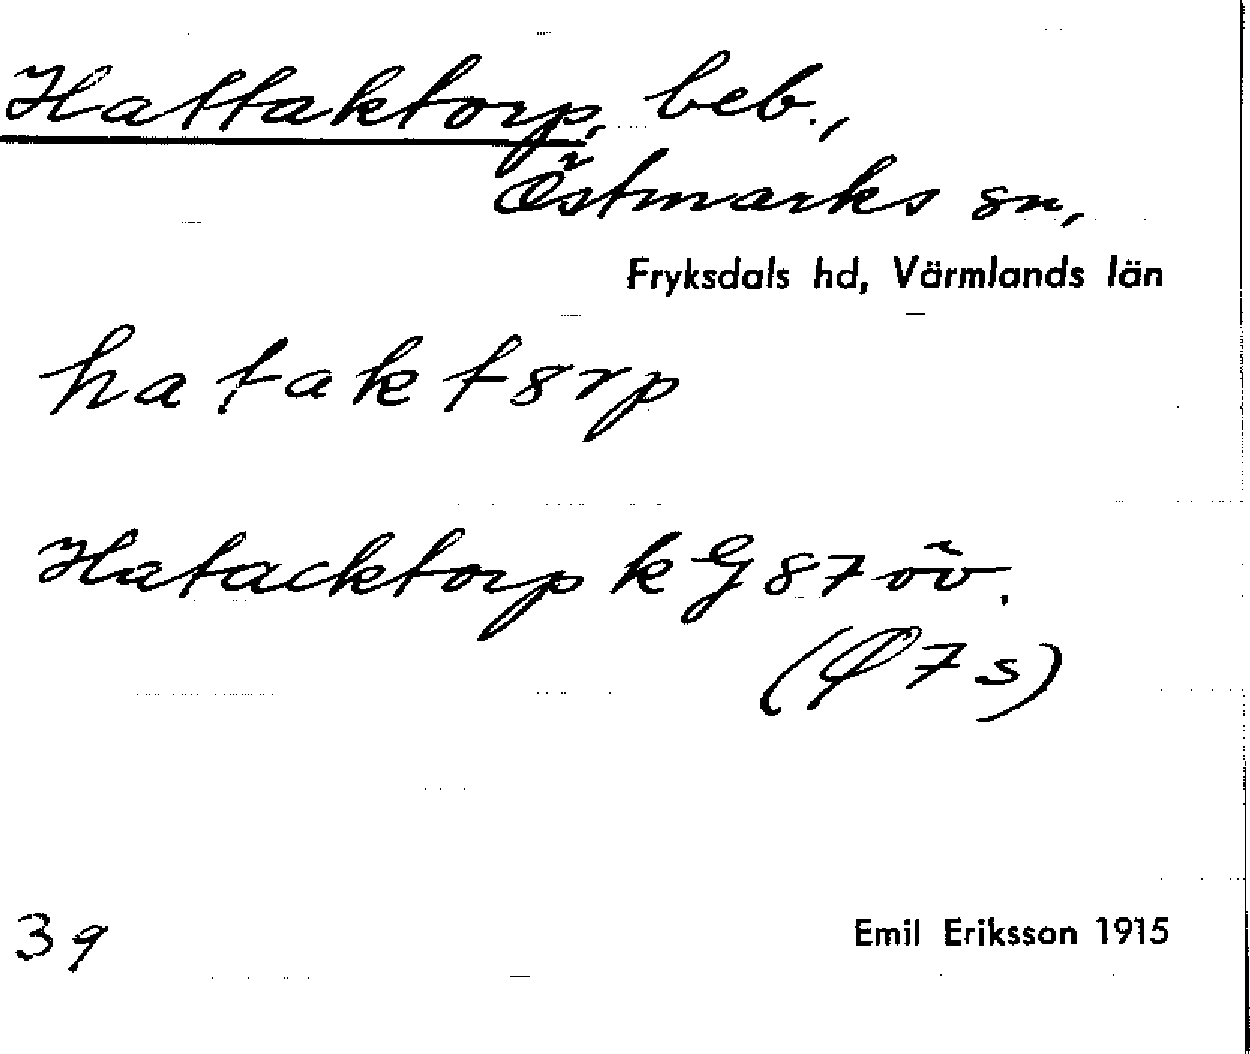 Hattaktorp, beb.,
Östmarks sn,
Fryksdals hd, Värmlands län
hatakt8rp
Hatacktorp k G 87 öv.
(7 s)
39
Emil Eriksson 1915